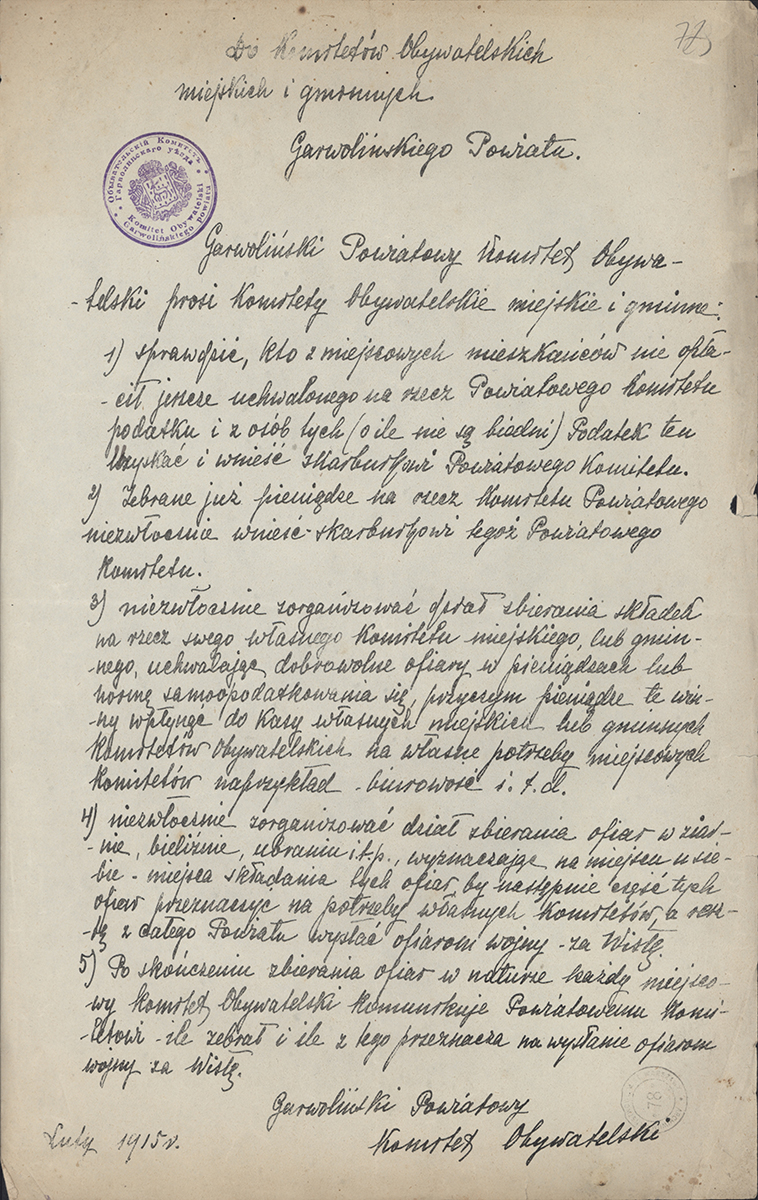 Do Komitetów Obywatelskich
miejskich i gminnych
Garwolińskiego Powiatu.
Обывательскій Комитетъ
Гарволинскаго уѣзда
Komitet Obywatelski
Garwolińskiego powiatu
Garwoliński Powiatowy Komitet Obywa-
-telski prosi Komitety Obywatelskie miejskie i gminne:
1) sprawdzić, kto z miejscowych mieszkańców nie opła-
-cił jeszcze uchwalonego na rzecz Powiatowego Komitetu
podatku i z osób tych (o ile nie są biedni) Podatek ten
uzyskać i wnieść skarbnikowi Powiatowego Komitetu.
2) Zebrane już pieniądze na rzecz Komitetu Powiatowego
niezwłocznie wnieść skarbnikowi tegoż Powiatowego
Komitetu.
3) niezwłocznie zorganizować dział zbierania składek
na rzecz swego własnego Komitetu miejskiego, lub gmin-
-nego, uchwalając dobrowolne ofiary w pieniądzach lub
normę samoopodatkowania się, przyczym pieniądze te win-
-ny wpłynąć do Kasy własnych miejskich lub gminnych
Komitetów Obywatelskich na własne potrzeby miejscowych
Komitetów naprzykład - biurowość i. t. d.
4) niezwłocznie zorganizować dział zbierania ofiar w ziar-
-nie, bieliźnie, ubraniu i t. p., wyznaczając na miejscu u sie-
-bie - miejsca składania tych ofiar, by następnie część tych
ofiar przeznaczyć na potrzeby własnych Komitetów, a resz-
-tę z całego Powiatu wysłać ofiarom wojny - za Wisłę.
5) Po skończeniu zbierania ofiar w naturze każdy miejsco-
wy Komitet Obywatelski komunikuje Powiatowemu Komi-
-tetowi - ile zebrał i ile z tego przeznacza na wysłanie ofiarom
wojny za Wisłę.
Garwoliński Powiatowy
Komitet Obywatelski.
Luty 1915 r.
78